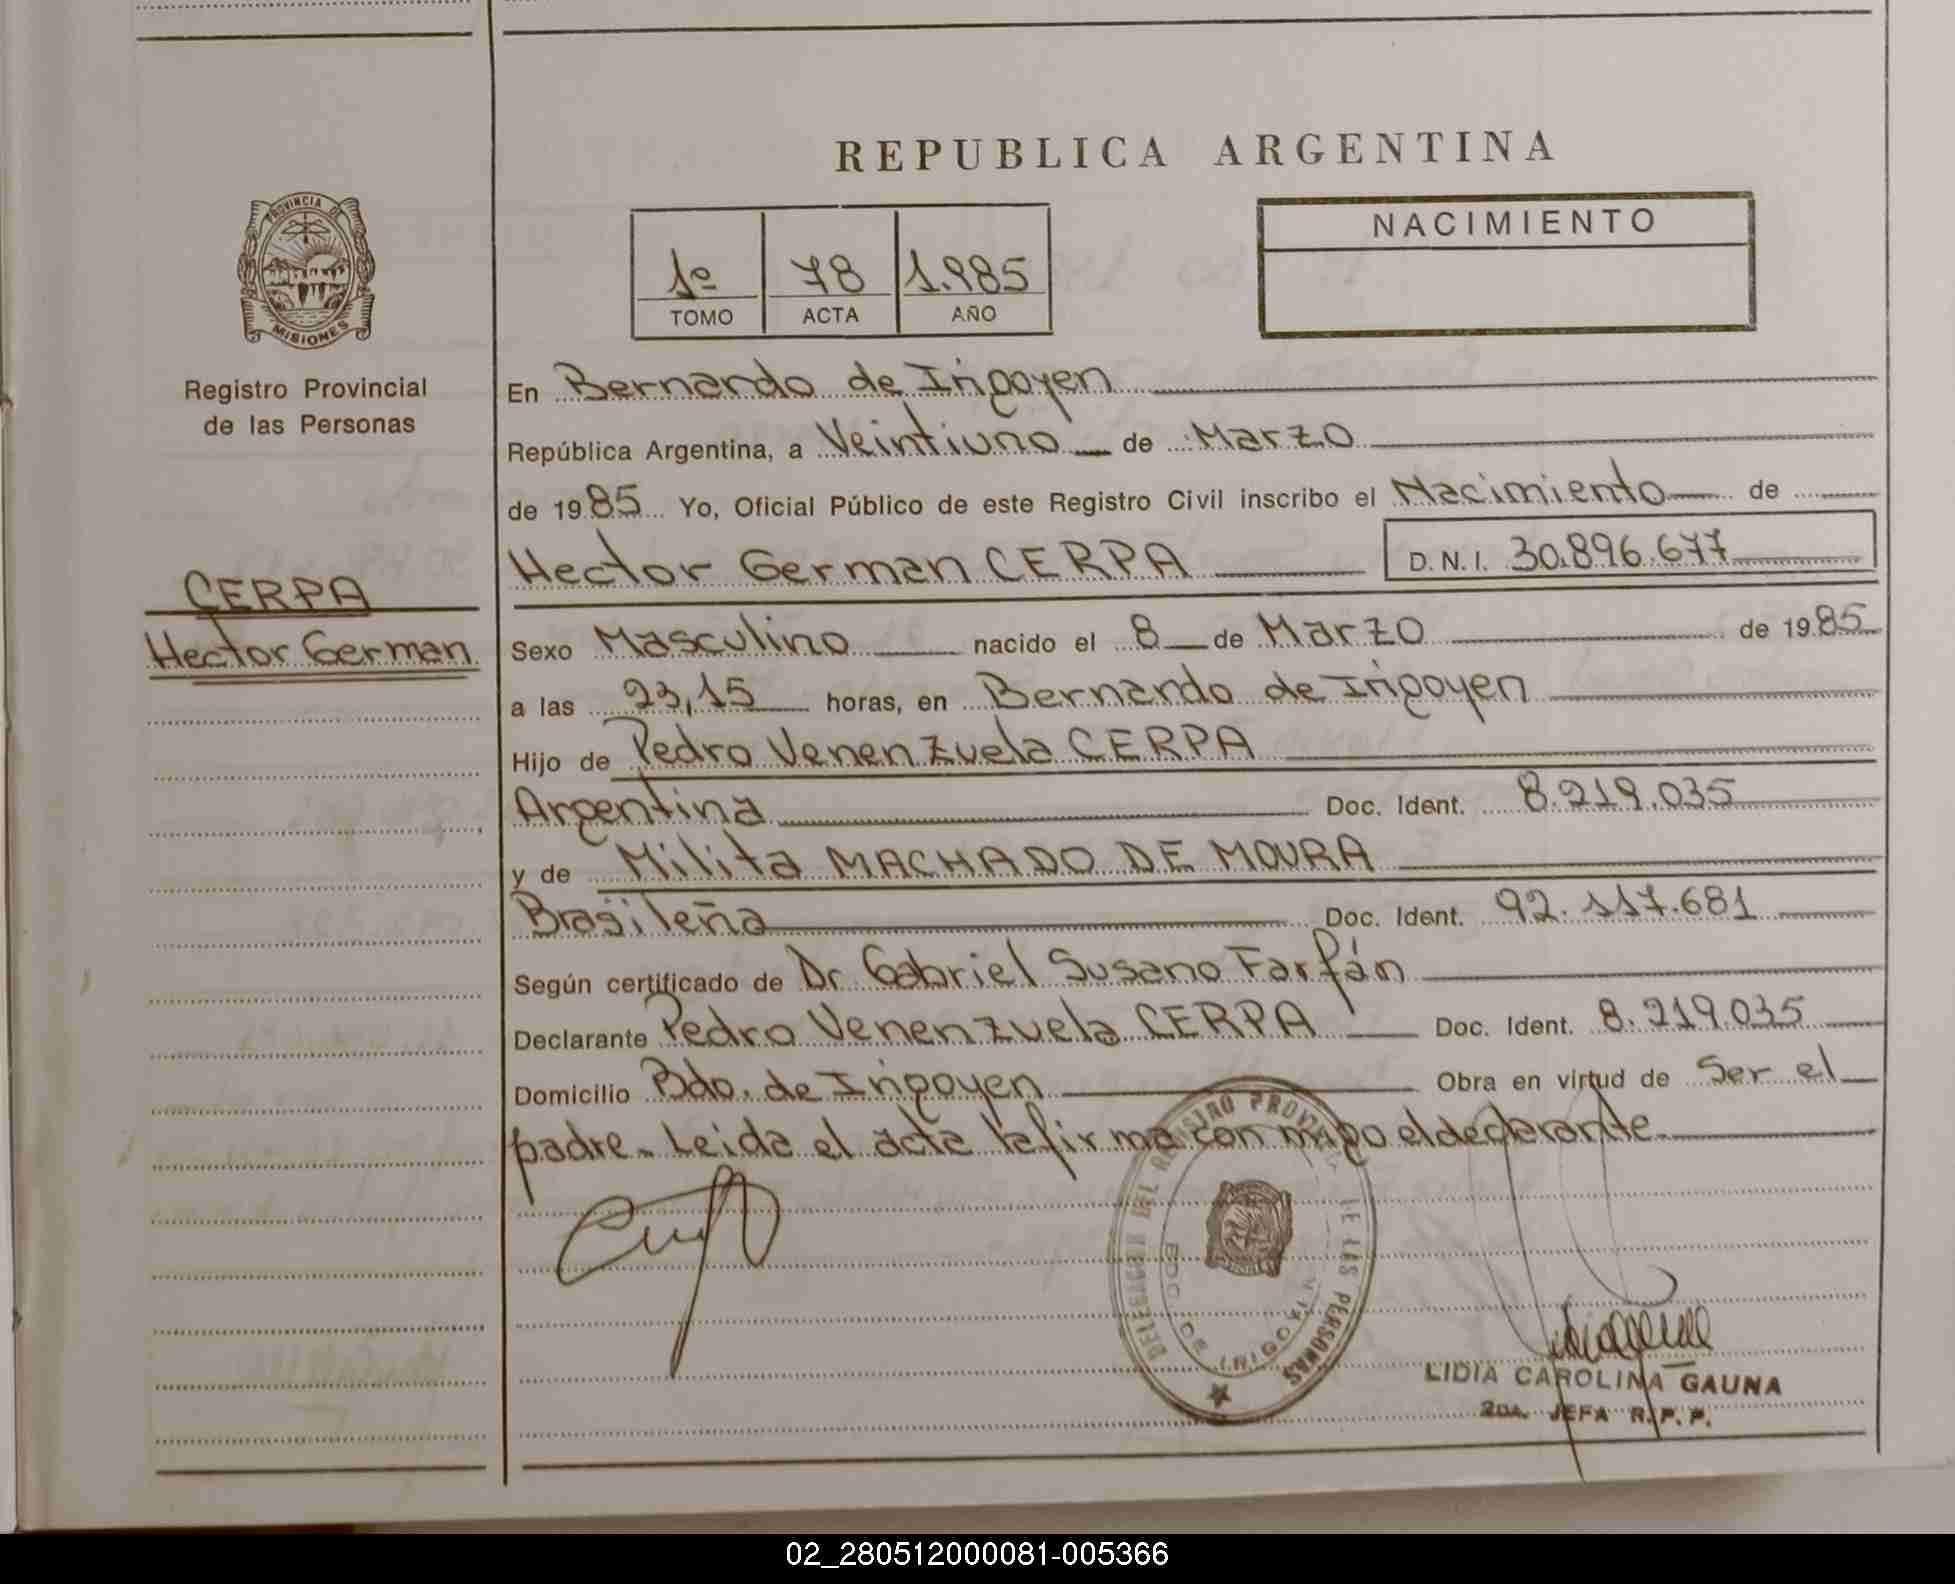 REPUBLICA ARGENTINA
PROVINCIA DE
MISIONES
Registro Provincial
de las Personas
1º 78 1.985
TOMO ACTA AÑO
NACIMIENTO
En Bernardo de Irigoyen
República Argentina, a Veintiuno de Marzo
de 1985 Yo, Oficial Público de este Registro Civil inscribo el Nacimiento de
Hector German CERPA D.N.I. 30.896.677
CERPA
Hector German
Sexo Masculino nacido el 8 de Marzo de 1985
a las 23,15 horas, en Bernardo de Irigoyen
Hijo de Pedro Venenzuela CERPA
Argentina Doc. Ident. 8.219.035
y de Milita MACHADO DE MOURA
Brasileña Doc. Ident. 92.117.681
Según certificado de Dr Gabriel Susano Farfán
Declarante Pedro Venenzuela CERPA Doc. Ident. 8.219.035
Domicilio Bdo. de Irigoyen Obra en virtud de Ser el
padre. Leida el acta la firma con migo el declarante.
DELEGACION DEL REGISTRO PROVINCIAL DE LAS PERSONAS
BDO DE IRIGOYEN
LIDIA CAROLINA GAUNA
2DA. JEFA R.P.P.
02_280512000081-005366